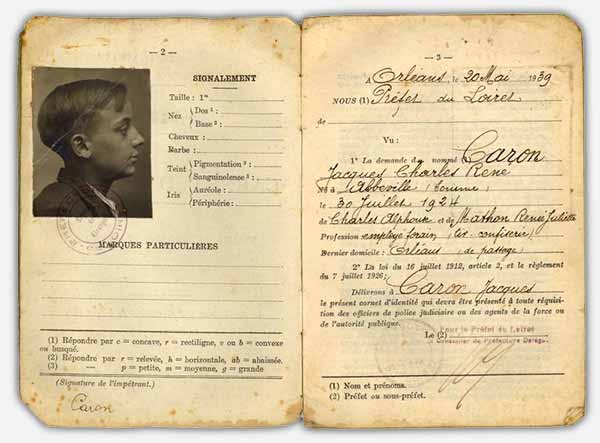 — 2 —
SIGNALEMENT
Taille : 1m
Nez { Dos 1 :
Base 2 :
Cheveux :
Barbe :
Teint { Pigmentation 3 :
Sanguinolence 3 :
Iris { Auréole :
Périphérie :
MARQUES PARTICULIÈRES
(1) Répondre par c = concave, r = rectiligne, v ou b = convexe
ou busqué.
(2) Répondre par r = relevée, h = horizontale, ab = abaissée.
(3) — p = petite, m = moyenne, g = grande
(Signature de l'impétrant.)
Caron
— 3 —
A Orléans, le 20 Mai 1939
NOUS (1) Préfet du Loiret
de
Vu :
1° La demande du nommé CARON
Jacques Charles René
Né à Abbeville (Somme)
le 30 Juillet 1924
de Charles Alphonse et de Mathon Renée Juliette
Profession employé forain (tir confiserie)
Dernier domicile : Orléans (de passage)
2° La loi du 16 juillet 1912, article 2, et le règlement
du 7 juillet 1926;
Délivrons à Caron Jacques
le présent carnet d'identité qui devra être présenté à toute réquisition
des officiers de police judiciaire ou des agents de la force ou
de l'autorité publique.
Le (2)
Pour le Préfet du Loiret
Le Conseiller de Préfecture Délégué
(1) Nom et prénoms.
(2) Préfet ou sous-préfet.